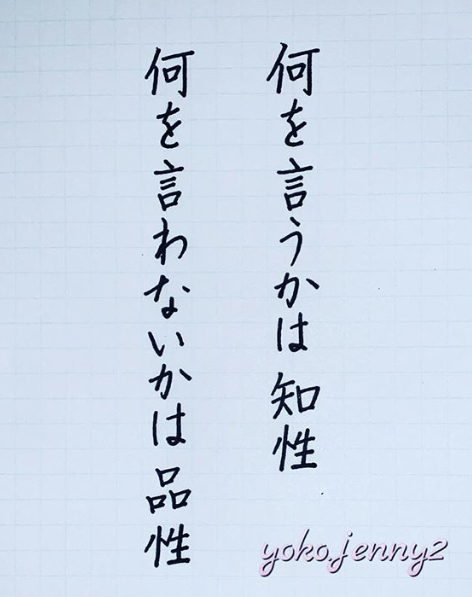 何を言うかは知性
何を言わないかは品性
yoko.jenny2